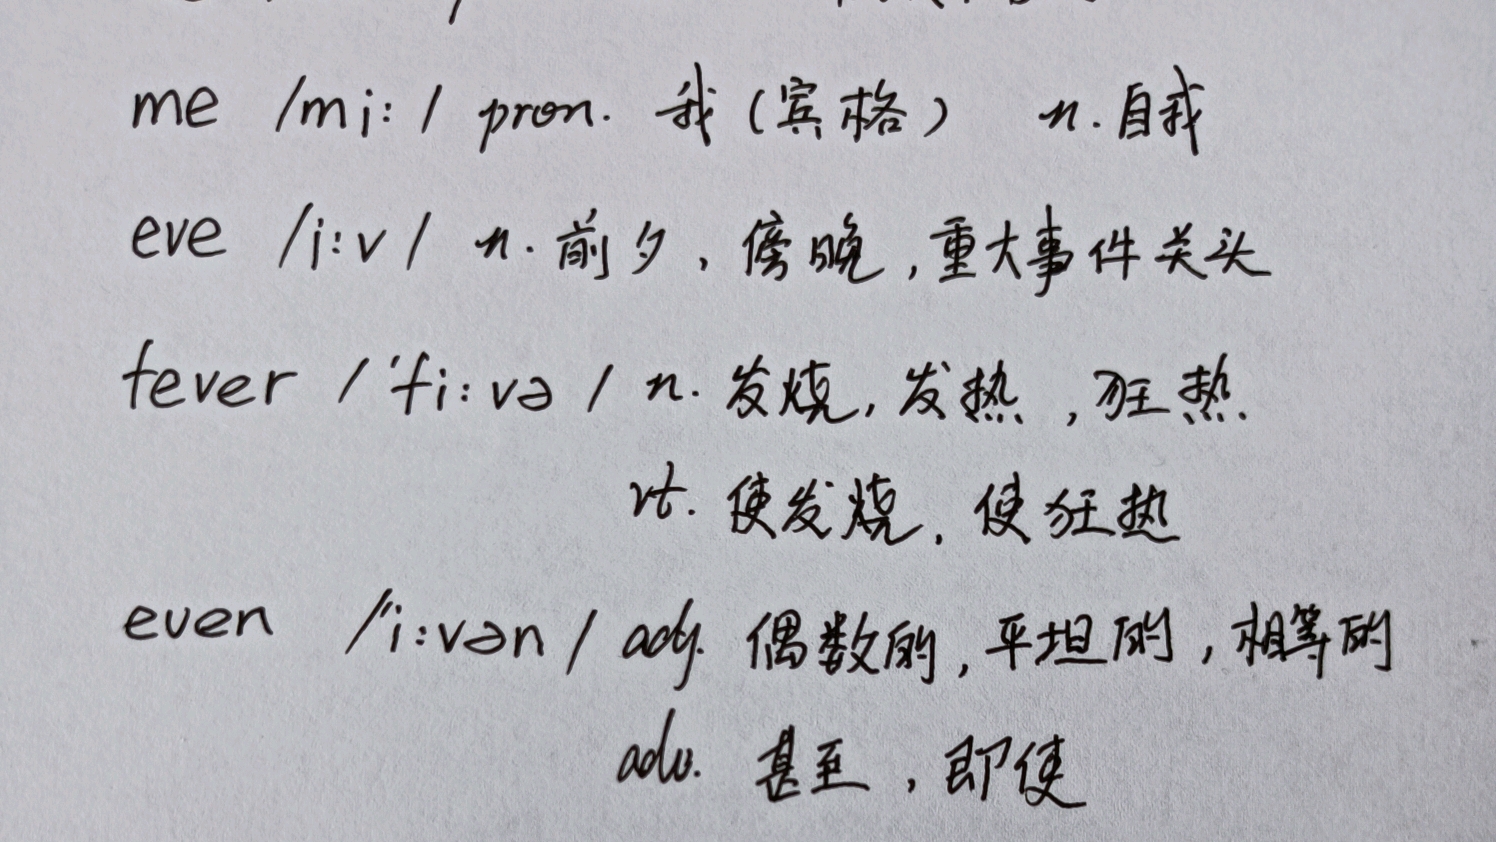 me /mi:/ pron. 我(宾格) n.自我
eve /i:v/ n.前夕,傍晚,重大事件关头
fever /'fi:və/ n.发烧,发热,狂热
vt.使发烧,使狂热
even /'i:vən/ adj.偶数的,平坦的,相等的
adv.甚至,即使